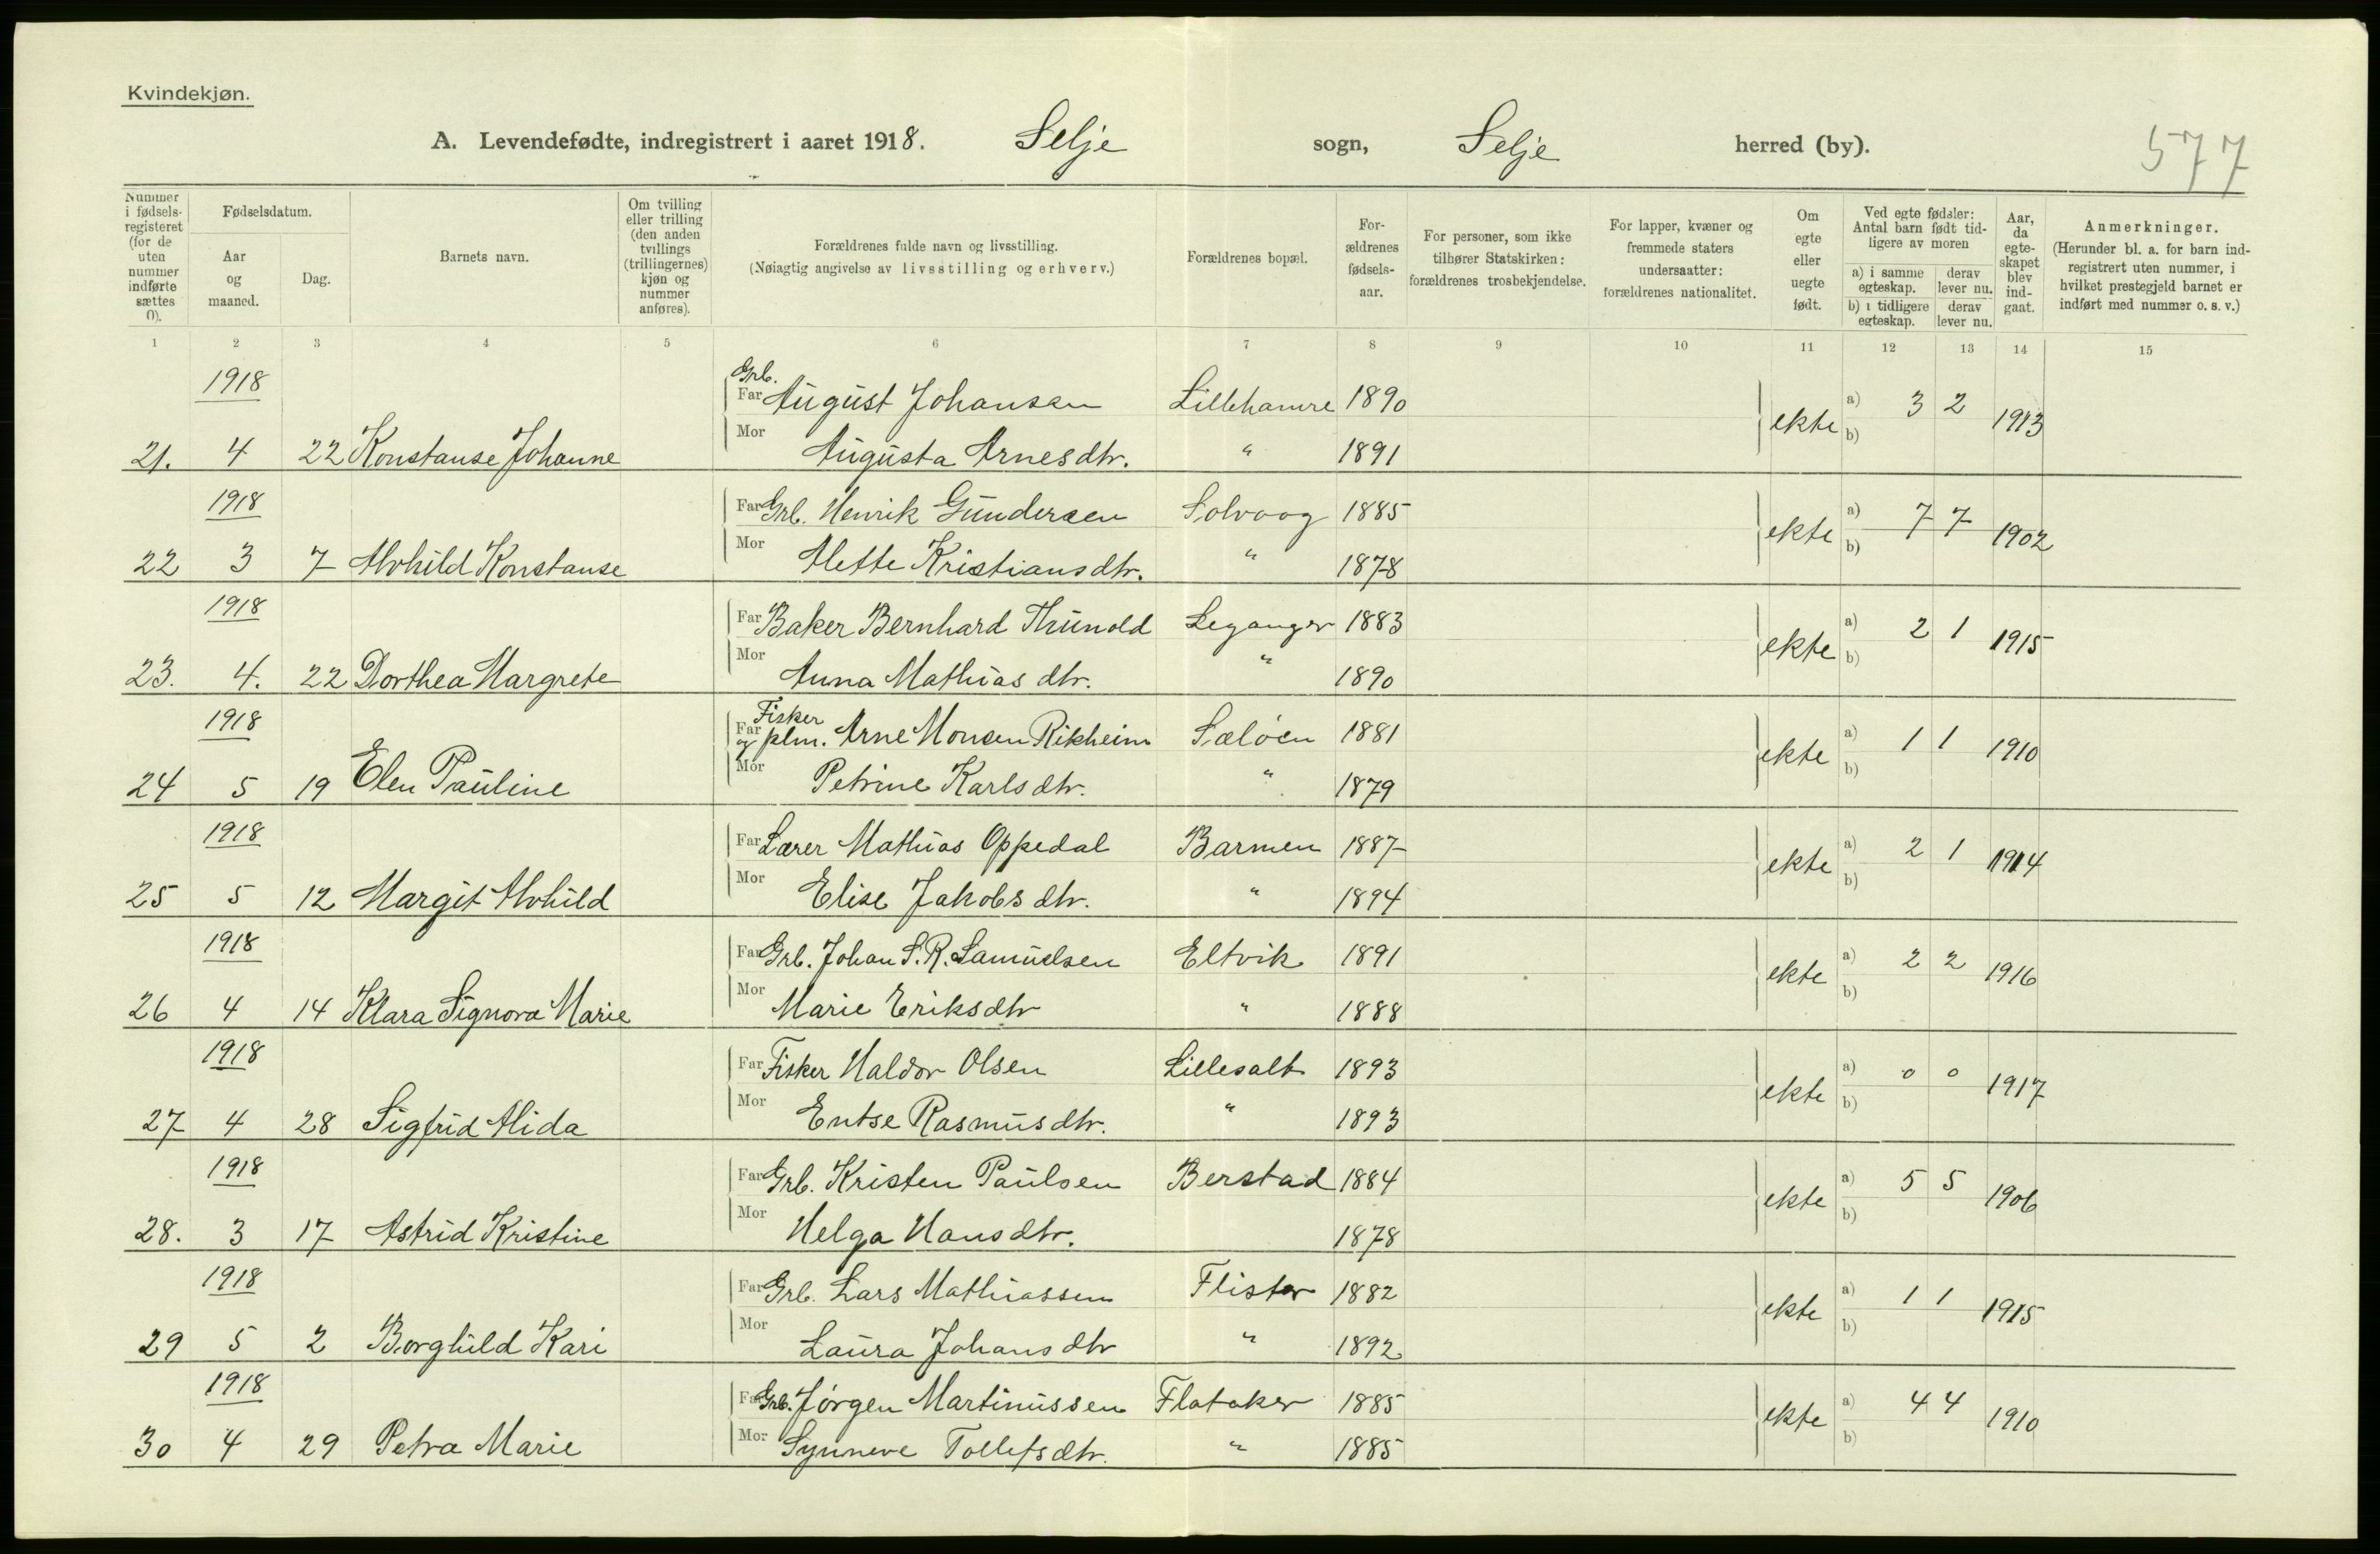 Kvindekjøn.
A. Levendefødte, indregistrert i aaret 1918. Selje sogn, Selje herred (by). 577
Nummer i fødselsregisteret (for de uten nummer indførte sættes 0).
Fødselsdatum.
Aar og maaned.
Dag.
Barnets navn.
Om tvilling eller trilling (den anden tvillings (trillingernes) kjøn og nummer anføres).
Forældrenes fulde navn og livsstilling.
(Nøiagtig angivelse av livsstilling og erhverv.)
Forældrenes bopæl.
Forældrenes fødselsaar.
For personer, som ikke tilhører Statskirken: forældrenes trosbekjendelse.
For lapper, kvæner og fremmede staters undersaatter: forældrenes nationalitet.
Om egte eller uegte født.
Ved egte fødsler: Antal barn født tidligere av moren
a) i samme egteskap. derav lever nu.
b) i tidligere egteskap. derav lever nu.
Aar, da egteskapet blev indgaat.
Anmerkninger.
(Herunder bl. a. for barn indregistrert uten nummer, i hvilket prestegjeld barnet er indført med nummer o. s. v.)
1 2 3 4 5 6 7 8 9 10 11 12 13 14 15
1918 Far Grb. August Johansen Lillehamre 1890 ekte a) 3 2 1913
21. 4 22 Konstanse Johanne Mor Augusta Arnesdtr. " 1891 b)
1918 Far Grb. Henrik Gundersen Solvoog 1885 ekte a) 7 7 1902
22 3 7 Alvhild Konstanse Mor Alette Kristiansdtr. " 1878 b)
1918 Far Baker Bernhard Thunold Leganger 1883 ekte a) 2 1 1915
23. 4. 22 Dorthea Margrete Mor Anna Mathias dtr. " 1890 b)
1918 Far Fisker og plm. Arne Monsen Rikheim Sæløen 1881 ekte a) 1 1 1910
24 5 19 Elen Pauline Mor Petrine Karlsdtr. " 1879 b)
1918 Far Lærer Mathias Oppedal Barmen 1887 ekte a) 2 1 1914
25 5 12 Margit Alvhild Mor Elise Jakobsdtr. " 1894 b)
1918 Far Grb. Johan S. R. Samuelsen Eltvik 1891 ekte a) 2 2 1916
26 4 14 Klara Signora Marie Mor Marie Eriksdtr " 1888 b)
1918 Far Fisker Haldor Olsen Lillesalt 1893 ekte a) 0 0 1917
27 4 28 Sigfrid Alida Mor Entse Rasmusdtr. " 1893 b)
1918 Far Grb. Kristen Paulsen Berstad 1884 ekte a) 5 5 1906
28. 3 17 Astrid Kristine Mor Helga Hansdtr. 1878 b)
1918 Far Grb. Lars Mathiassen Flister 1882 ekte a) 1 1 1915
29 5 2 Borghild Kari Mor Laura Johans dtr " 1892 b)
1918 Far Grb. Jørgen Martinussen Flataker 1885 ekte a) 4 4 1910
30 4 29 Petra Marie Mor Synneve Tollefsdtr. " 1885 b)